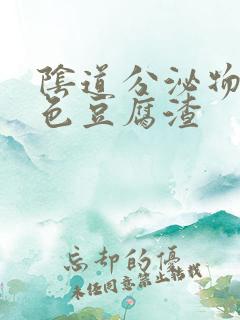 陰道分泌物
色豆腐渣
忘却的優
未经同意禁止转载